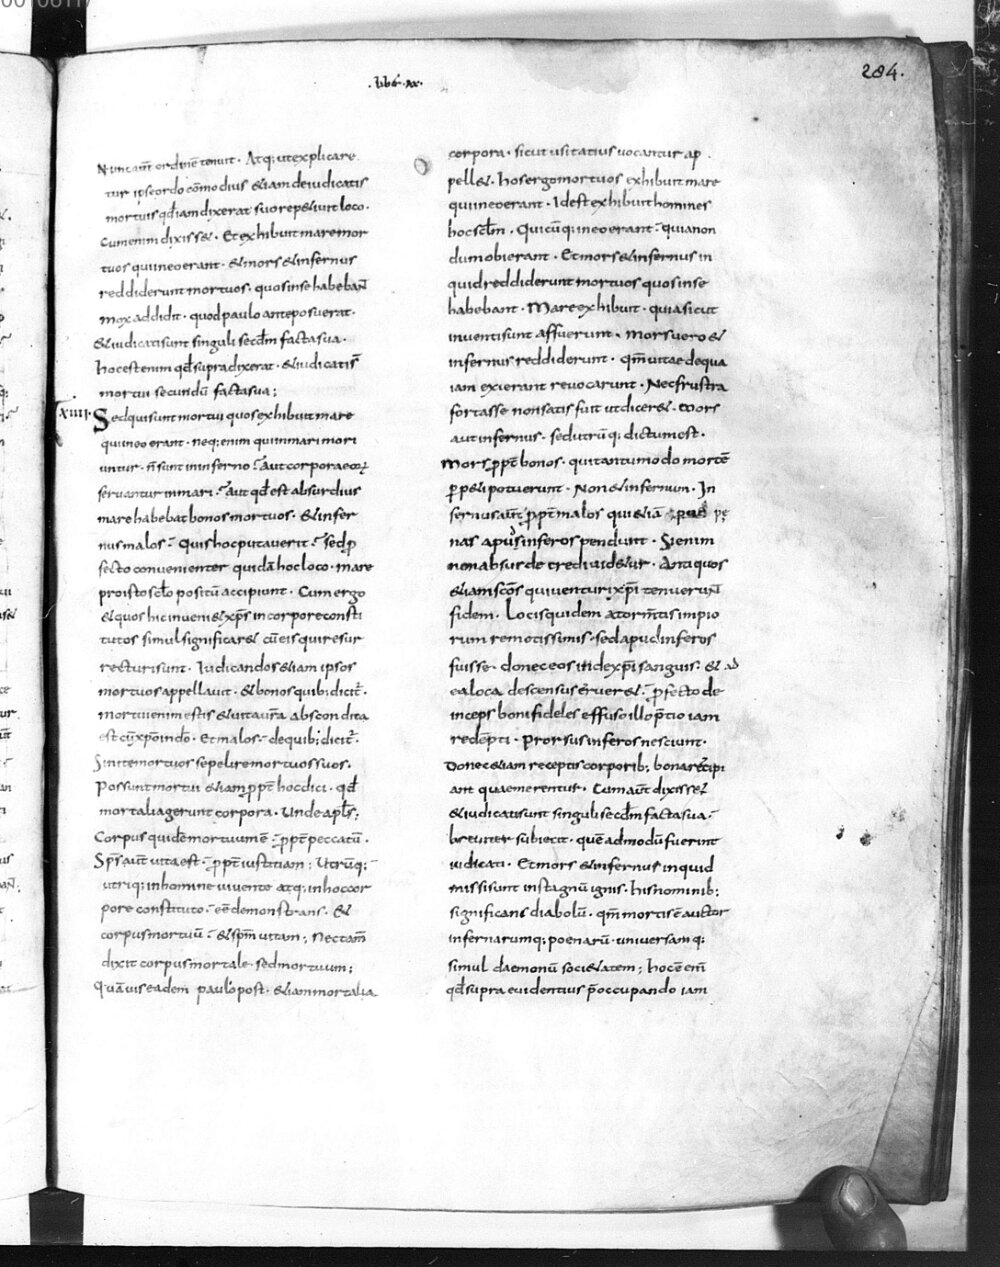 .lib̄.xx.
284.
Nunc aūt ordinē tenuit. Atq; ut explicare
tur ipse ordo cōmodius & iam de iudicatis
mortuis qđ iam dixerat suo repetiuit loco.
Cum enim dixiss&. Et exhibuit mare mor
tuos qui in eo erant. & mors & infernus
reddiderunt mortuos. quos in se habebant
mox addidit. quod paulo ante posuerat.
& iudicati sunt singuli secđm facta sua.
hoc est enim qđ supra dixerat. & iudicati s̄
mortui secundū facta sua;
xiiii. Sed qui sunt mortui quos exhibuit mare
qui in eo erant. neq; enim qui in mari mori
untur. ñ sunt in inferno? aut corpora eorꝝ
seruantur in mari? aut qđ est absurdius
mare habebat bonos mortuos. & infer
nus malos? Quis hoc putauerit? sed ꝓ
fecto conuenienter quidā hoc loco. mare
pro isto scło positū accipiunt. Cum ergo
& quos hic inueni& xp̄s in corpore consti
tutos simul significar& cū eis qui resur
recturi sunt. Iudicandos & iam ipsos
mortuos appellauit. & bonos quib; dicit̄.
mortui enim estis & uita ur̄a abscondita
est cū xp̄o in dō. Et malos. de quib; dicit̄.
Sinite mortuos sepelire mortuos suos.
Possunt mortui & iam ꝓpt̄ hoc dici. qđ
mortalia gerunt corpora. Unde apłs;
Corpus quidē mortuum ē ꝓpt̄ peccatū.
Sp̄s aūt uita est ꝓpt̄ iustitiam; Utrūq;
utriq; in homine uiuente atq; in hoc cor
pore constituto eē demonstrans. &
corpus mortuū & sp̄m uitam; Nec tam̄
dixit corpus mortale. sed mortuum;
Quāuis eadem paulo post. & iam mortalia
corpora. sicut usitatius uocantur ap
pell&. hos ergo mortuos exhibuit mare
qui in eo erant. Id est exhibuit homines
hoc scłm. Quicūq; in eo erant quia non
dum obierant. Et mors & infernus in
quid reddiderunt mortuos quos in se
habebant. Mare exhibuit. quia sicut
inuenti sunt affuerunt. mors uero &
infernus reddiderunt. qm̄ uitae de qua
iam exierant reuocarunt. Nec frustra
fortasse non satis fuit ut dicer&. mors
aut infernus. sed utrūq; dictum est.
mors ꝓpt̄ bonos. qui tantum modo mortē
ꝑp&i potuerunt. Non & infernum. In
fernus aūt ꝓpt̄ malos qui & iā pę
nas apud inferos pendunt. Si enim
non absurde credi uid&ur. Antiquos
& iam sc̄os qui uenturi xp̄i tenuerunt
fidem. Locis quidem a torm̄tis impio
rum remotissimis. sed apud inferos
fuisse. donec eos inde xp̄i sanguis. & ad
ea loca descensus eruer&. ꝓfecto de
inceps boni fideles effuso illo p̄tio iam
redēpti. Prorsus inferos nesciunt.
Donec & iam receptis corporib; bona recipi
ant quae merentur. Cum aūt dixiss&
& iudicati sunt singuli secđm facta sua.
breuiter subiecit. quē admodū fuerint
iudicati. Et mors & infernus inquid
missi sunt in stagnū ignis. his nominib;
significans diabolū. qm̄ mortis ē auctor
infernarumq; poenarū. uniuersamq;
simul daemonū soci&atem; hoc ē eni̅
qđ supra euidentius p̄occupando iam